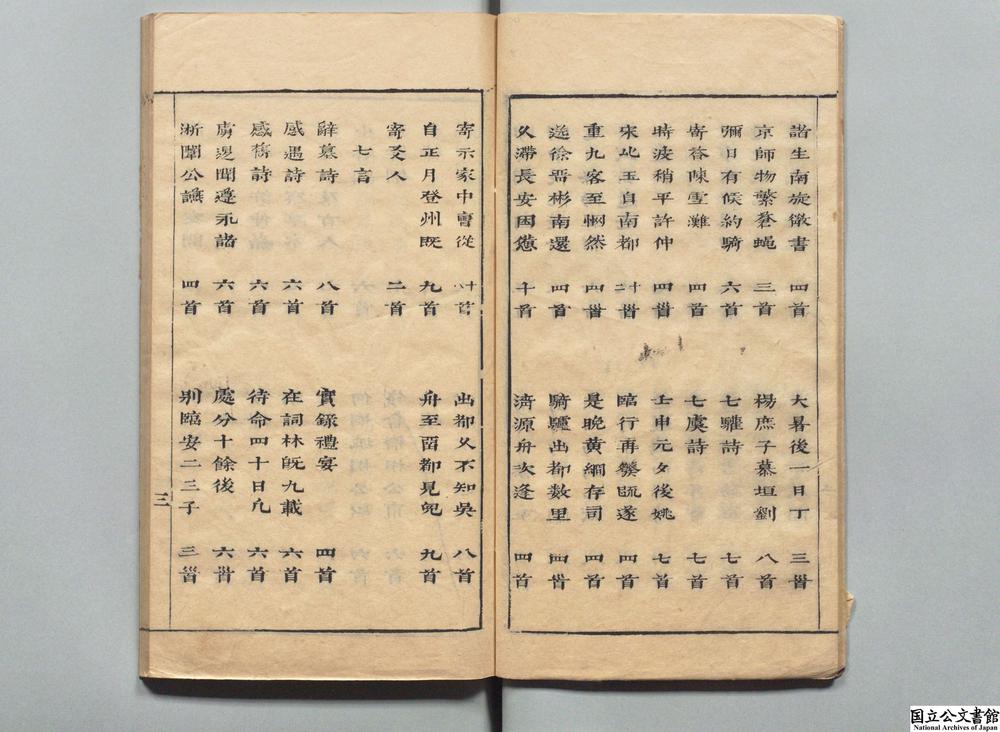 諸生南旋徵書 四首 大暑後一日丁 三首
京師物繁登蝇 三首 楊庶子慕垣劉 八首
彌日有候約騎 六首 七驩詩 七首
寄答陳雪灘 四首 七虞詩 七首
時疫稍平許仲 四首 壬申元夕後姚 七首
宋比玉自南都 十首 臨行再鑿瓯遂 四首
重九客至惘然 四首 是晩黄綱存司 四首
送徐晋彬南還 四首 騎驢出都数里 四首
久滯長安因憊 十首 済源舟次逢 四首
寄示家中會從 十首 出都久不知吳 八首
自正月登州既 九首 舟至畱都見皃 九首
寄友人 二首
辭墓詩 八首 實錄禮宴 四首
感遇詩 六首 在詞林既九載 六首
感舊詩 六首 待命四十日凡 六首
虜退聞遵永諸 六首 處分十餘後 六首
淅闈公讌 四首 别臨安二三子 三首
三
国立公文書館
National Archives of Japan